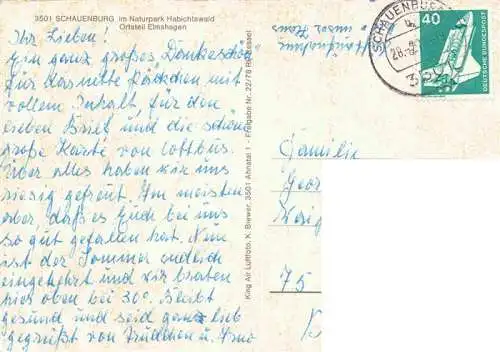 3501 SCHAUENBURG im Naturpark Habichtswald
Ortsteil Elmshagen
Ihr Lieben!
Ein ganz großes Dankeschön
für das nette Päckchen mit
vollem Inhalt für den
lieben Brief und die schöne
große Karte von Cottbus.
Über alles haben wir uns
riesig gefreut. Am meisten
aber, daß es Euch bei uns
so gut gefallen hat. Nun
ist der Sommer endlich
eingekehrt und wir braten
hier oben bei 30°. Bleibt
gesund und seid ganz lieb
gegrüßt von Trudchen u. Arno
King Air Luftfoto, K. Brewer, 3501 Ahnatal 1 - Freigabe Nr. 22/78 RP Kassel
unser Haus
SCHAUENBURG
28.
350
40
DEUTSCHE BUNDESPOST
Familie
Geor
75